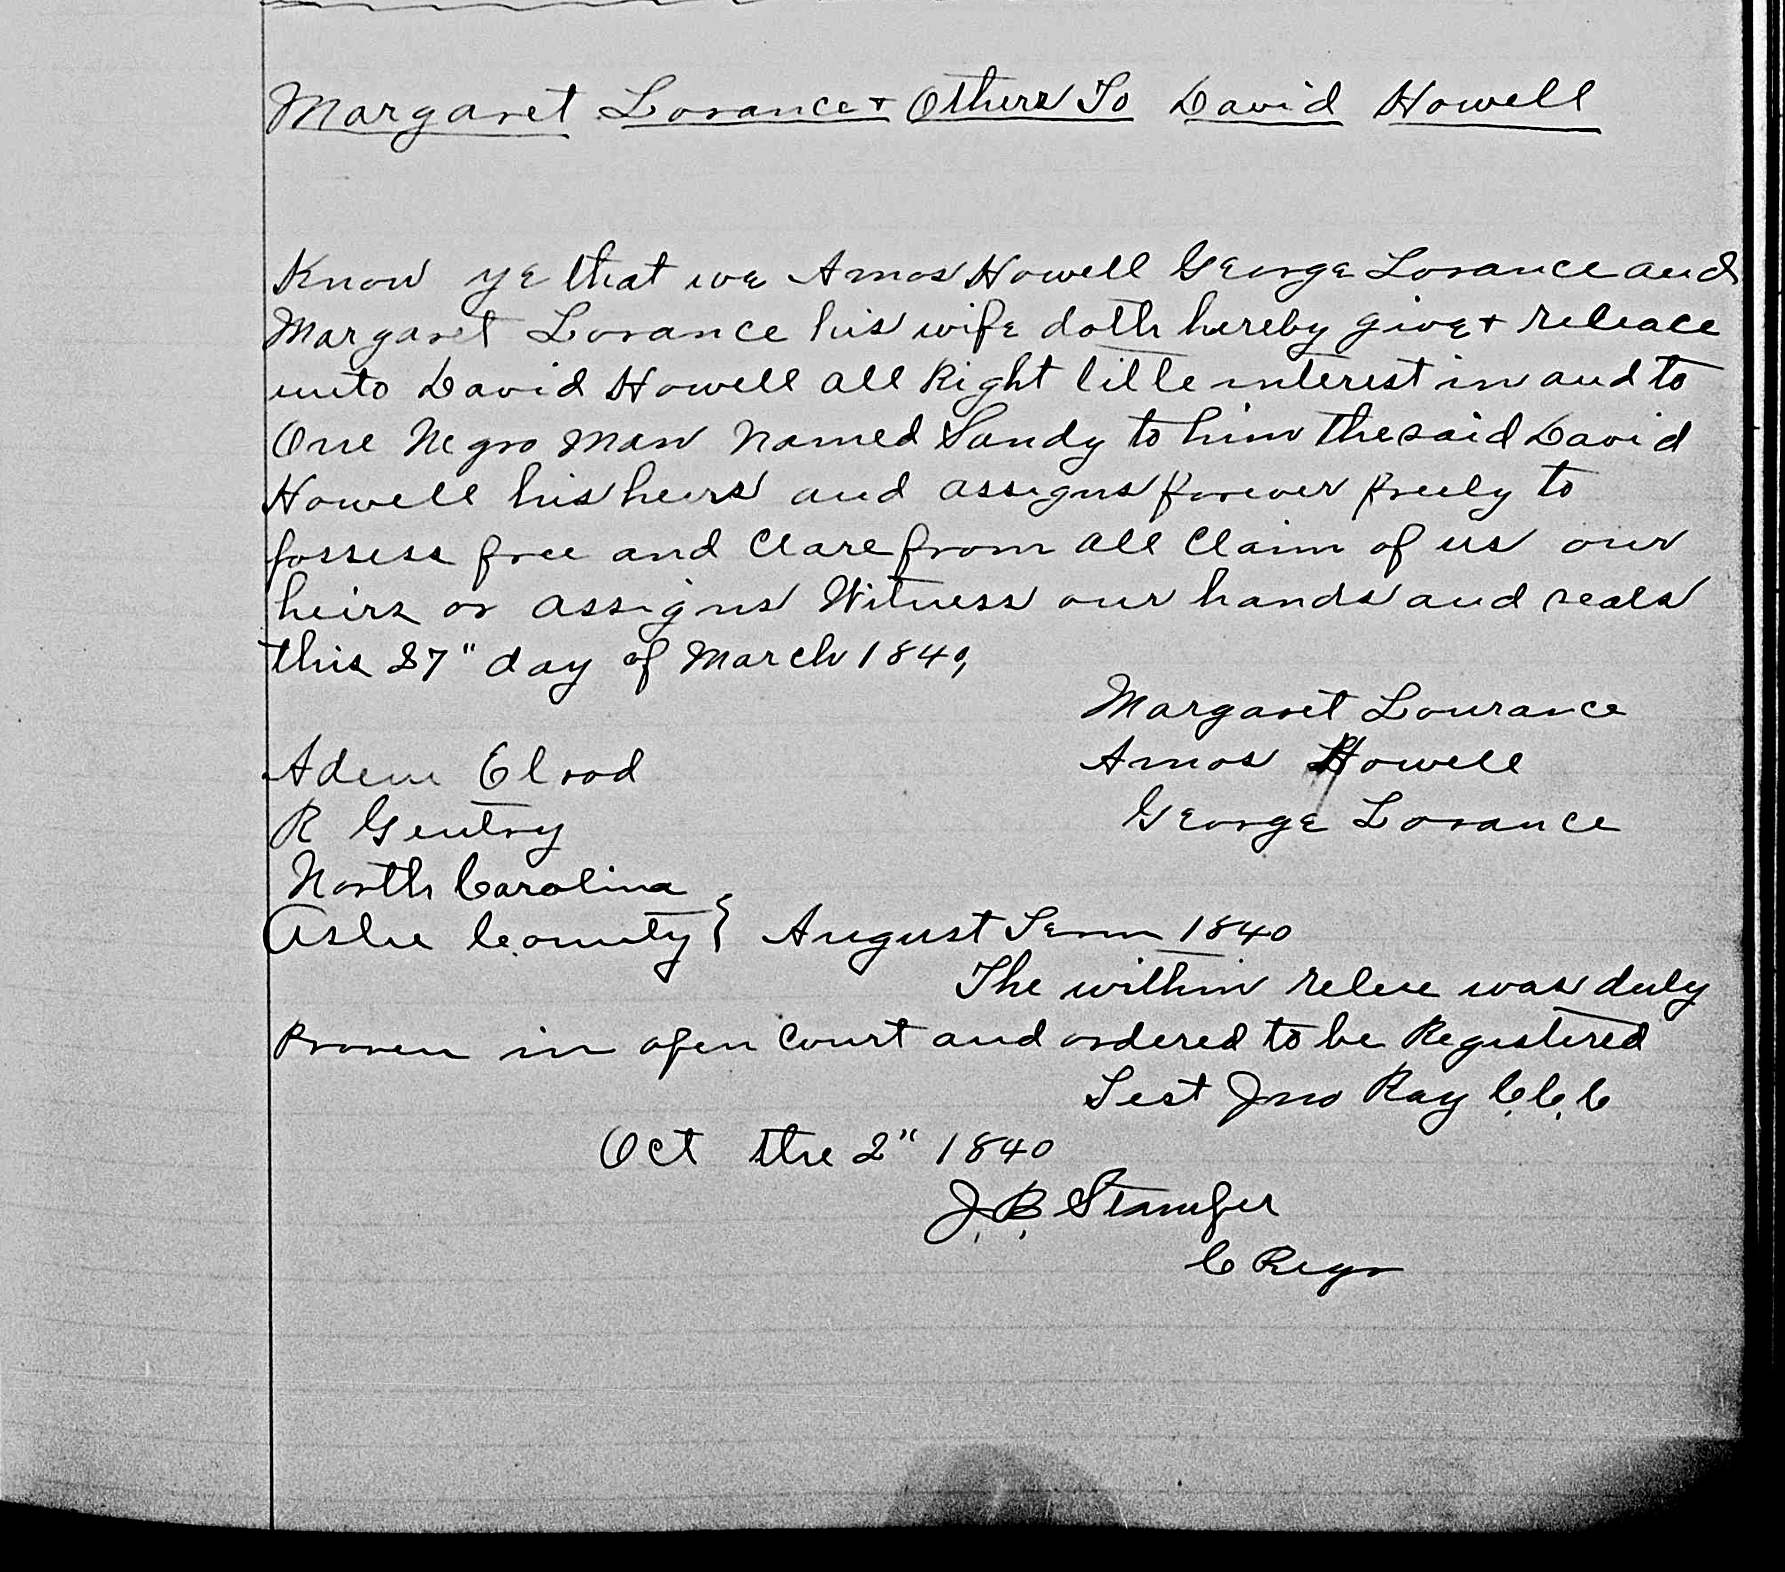 Margaret Lorance + Others To David Howell
Know ye that we Amos Howell George Lorance and
Margaret Lorance his wife doth hereby give + releace
unto David Howell all Right title interest in and to
One Negro man named Sandy to him the said David
Howell his heirs and assigns forever freely to
possess free and Clare from all Claim of us our
heirs or assigns Witness our hands and seals
this 27" day of March 1840,
Margaret Lourance
Adem Elrod
Amos Howell
R Gentry
George Lorance
North Carolina
Ashe County } August Term 1840
The within relese was duly
Proven in open Court and ordered to be Registered
Test Jno Ray C.C.C
Oct the 2" 1840
J.B. Stamper
C Regr